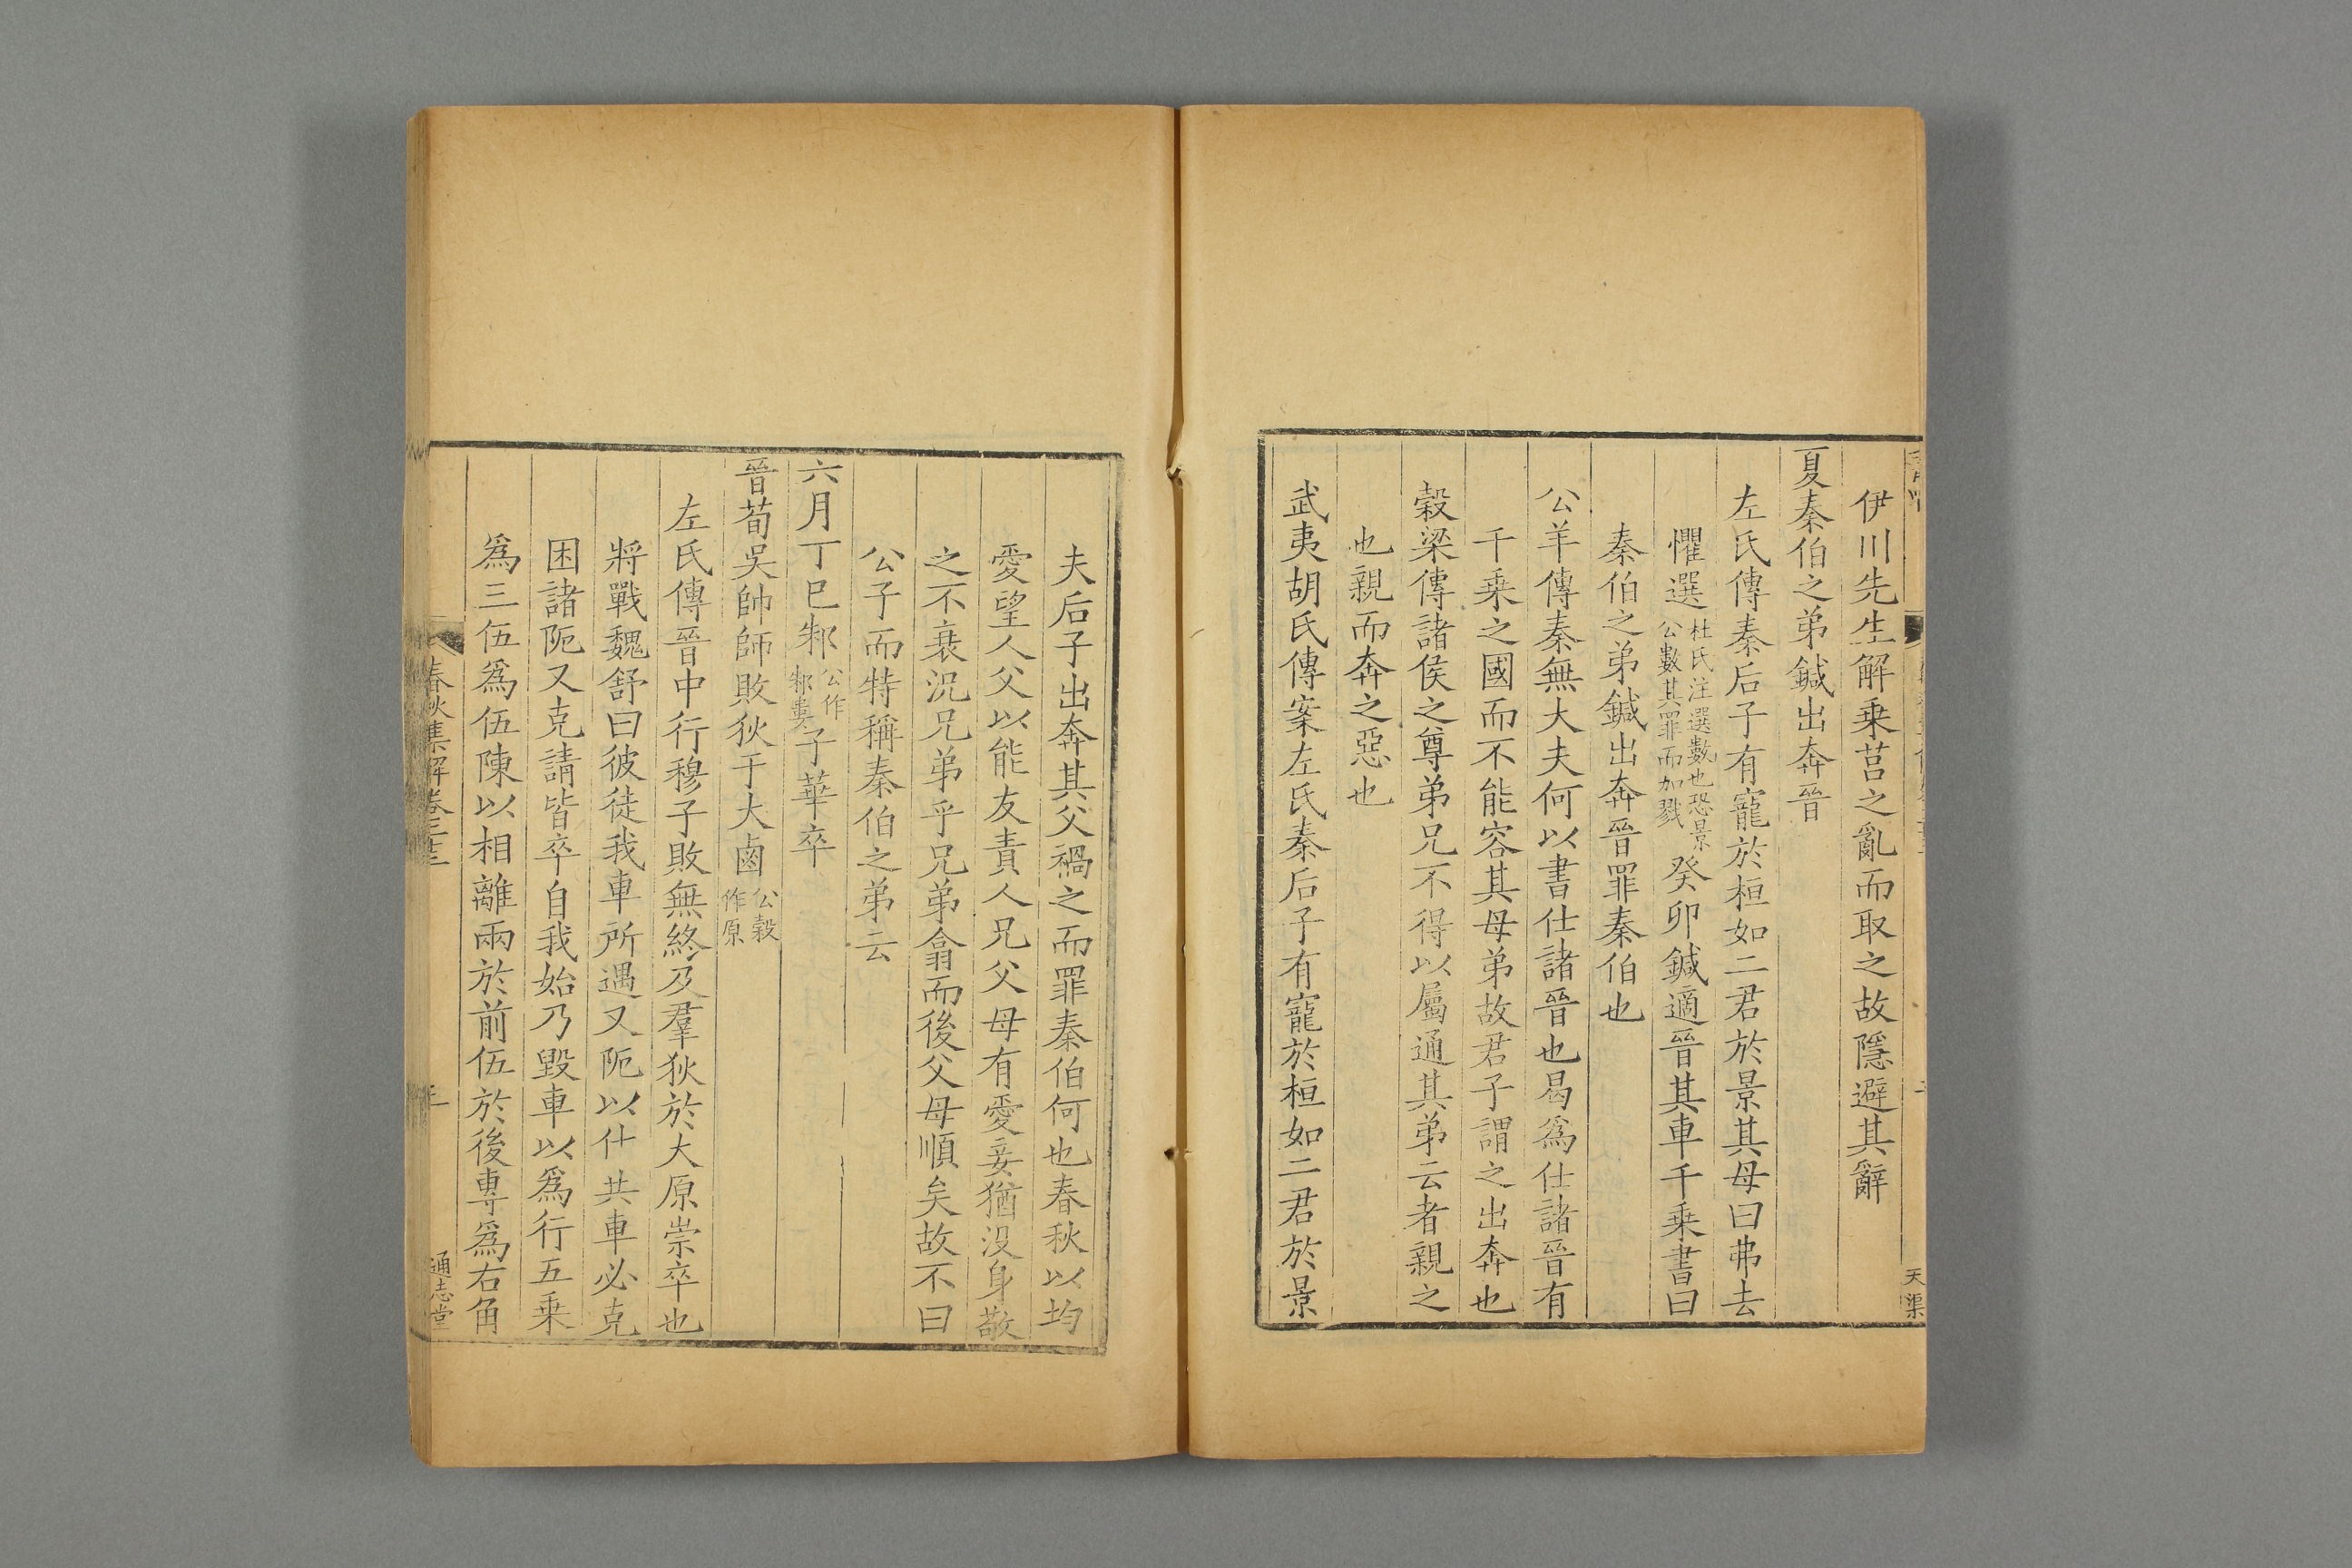 伊川先生解乗莒之亂而取之故隱避其辭
夏秦伯之弟鍼出奔晉
左氏傳秦后子有寵於桓如二君於景其母曰弗去
懼選杜氏注選數也恐景公數其罪而加戮癸卯鍼適晉其車千乗書曰
秦伯之弟鍼出奔晉罪秦伯也
公羊傳秦無大夫何以書仕諸晉也曷爲仕諸晉有
千乗之國而不能容其母弟故君子謂之出奔也
穀梁傳諸侯之尊弟兄不得以屬通其弟云者親之
也親而奔之惡也
武夷胡氏傳案左氏秦后子有寵於桓如二君於景
天渠
夫后子出奔其父禍之而罪秦伯何也春秋以均
愛望人父以能友責人兄父母有愛妾猶沒身敬
之不衰況兄弟乎兄弟翕而後父母順矣故不曰
公子而特稱秦伯之弟云
六月丁巳邾公作邾婁子華卒
晉荀吳帥師敗狄于大鹵公穀作原
左氏傳晉中行穆子敗無終及羣狄於大原崇卒也
將戰魏舒曰彼徒我車所遇又阨以什共車必克
困諸阨又克請皆卒自我始乃毀車以爲行五乗
爲三伍爲伍陳以相離兩於前伍於後專爲右角
春秋集解卷二十三
通志堂